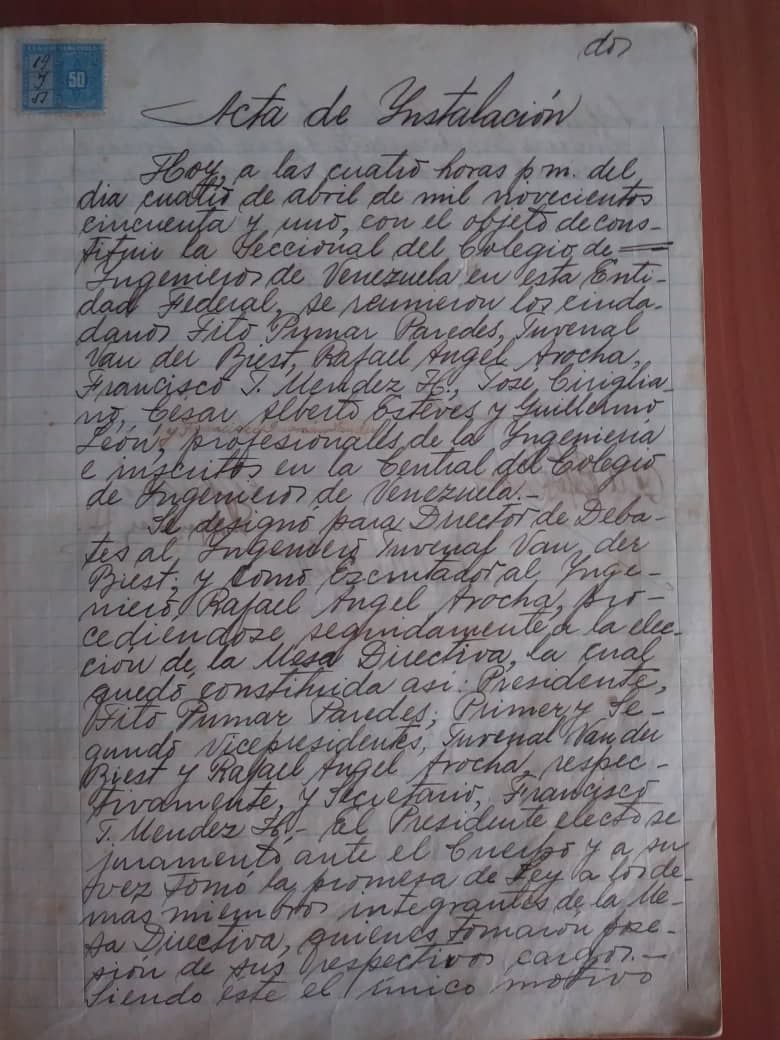 dos
50
Acta de Instalación
Hoy, a las cuatro horas p.m. del
dia cuatro de abril de mil novecientos
cincuenta y uno, con el objeto de cons-
tituir la Seccional del Colegio de
Ingenieros de Venezuela en esta Enti-
dad Federal, se reunieron los ciuda-
danos Tito Pumar Paredes, Juvenal
Van der Biest, Rafael Angel Arocha,
Francisco T. Mendez H., Jose Cirigliа-
no, César Alberto Estéves y Guillermo
León, profesionales de la Ingeniería
e inscritos en la Central del Colegio
de Ingenieros de Venezuela.-
Se designó para Director de Deba-
tes al Ingeniero Juvenal Van der
Biest; y como Escrutador al Inge-
niero Rafael Angel Arocha, pro-
cediendose seguidamente a la elec-
ción de la Mesa Directiva, la cual
quedó constituida asi: Presidente,
Tito Pumar Paredes; Primer y Se-
gundo Vicepresidentes, Juvenal Van der
Biest y Rafael Angel Arocha, respec-
tivamente, y Secretario, Francisco
T. Mendez H.- El Presidente electo se
juramentó ante el Cuerpo y a su
vez tomó la promesa de Ley a los de-
mas miembros integrantes de la Me-
sa Directiva, quienes tomaron pose-
sión de sus respectivos cargos.-
Siendo este el único motivo